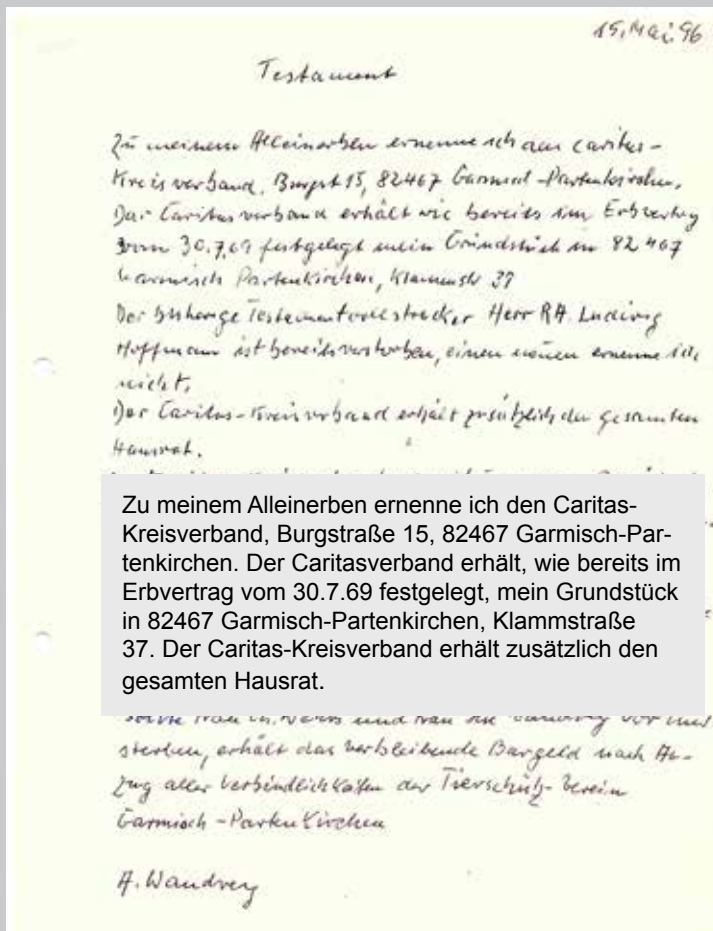 15. Mai 96
Testament
Zu meinem Alleinerben ernenne ich den Caritas-
Kreisverband, Burgst 15, 82467 Garmisch-Partenkirchen.
Der Caritasverband erhält wie bereits im Erbvertrag
vom 30.7.69 festgelegt mein Grundstück in 82467
Garmisch Partenkirchen, Klammstr 37
Der bisherige Testamentvollstrecker Herr RA. Ludwig
Hoffmann ist bereits verstorben, einen neuen ernenne ich
nicht.
Der Caritas-Kreisverband erhält zusätzlich den gesamten
Hausrat.
Zu meinem Alleinerben ernenne ich den Caritas-
Kreisverband, Burgstraße 15, 82467 Garmisch-Par-
tenkirchen. Der Caritasverband erhält, wie bereits im
Erbvertrag vom 30.7.69 festgelegt, mein Grundstück
in 82467 Garmisch-Partenkirchen, Klammstraße
37. Der Caritas-Kreisverband erhält zusätzlich den
gesamten Hausrat.
und vor mir
sterben, erhält das verbleibende Bargeld nach Ab-
zug aller Verbindlichkeiten der Tierschutz-Verein
Garmisch-Partenkirchen